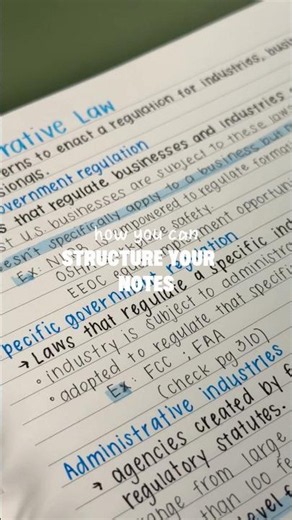 rative Law
erns to enact a regulation for industries, busi
sionals.
overnment regulation
s that regulate businesses and industries
st U.S. businesses are subject to these law
esn't specifically apply to a business but
Ex: empowered to regulate
OSHA safety.
EEOC opportun
how you can
STRUCTURE YOUR
NOTES
pecific government regulation
→ Laws that regulate a specific ind
◦ industry is subject to administra
◦ adopted to regulate that specifi
Ex: FCC ; FAA
(check pg 310)
Administrative industries
→ agencies created by f
regulatory statutes.
range from large
than 100 fe
level f